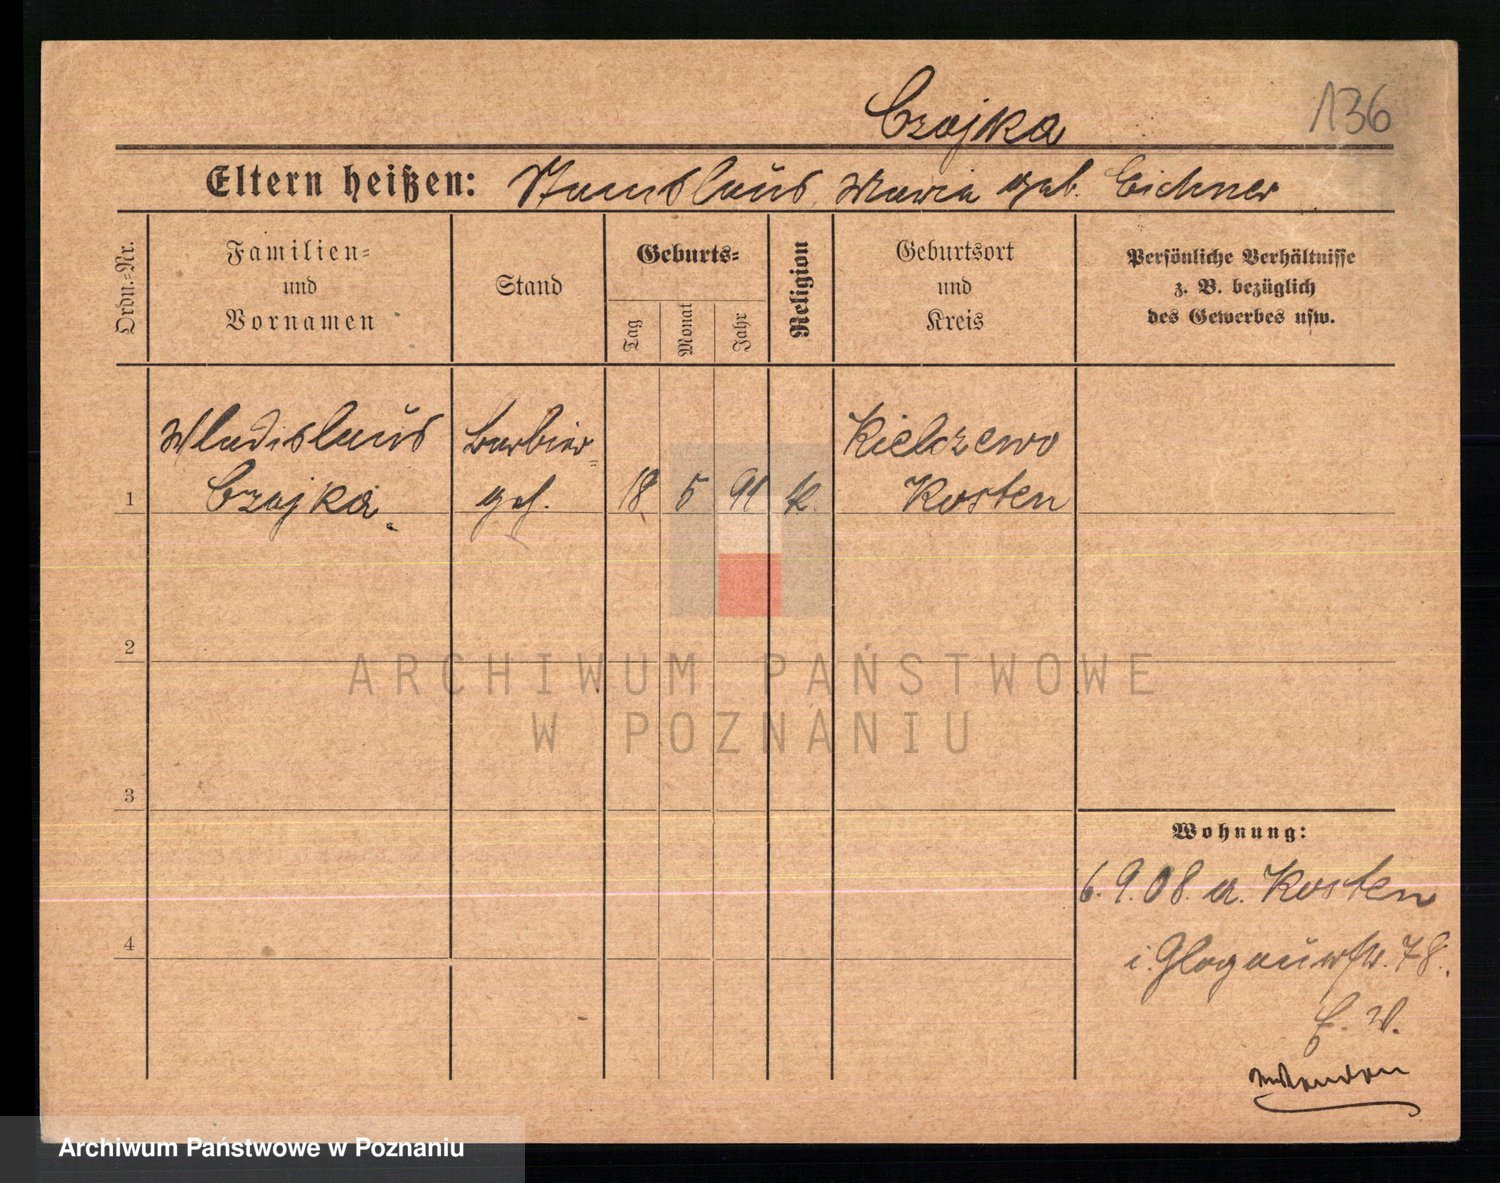 Czajka
136
Eltern heißen: Stanislaus, Maria geb. Eichner
Ordn.=Nr.
Familien=
und
Vornamen
Stand
Geburts=
Tag
Monat
Jahr
Religion
Geburtsort
und
Kreis
Persönliche Verhältnisse
z. B. bezüglich
des Gewerbes usw.
1
Wladislaus
Czajka
Barbier=
geh.
18.
5
91
k.
Kielczewo
Kosten
2
3
4
Wohnung:
6.9.08. a. Kosten
i. Glogauerstr. 78.
ARCHIWUM PAŃSTWOWE
W POZNANIU
Archiwum Państwowe w Poznaniu